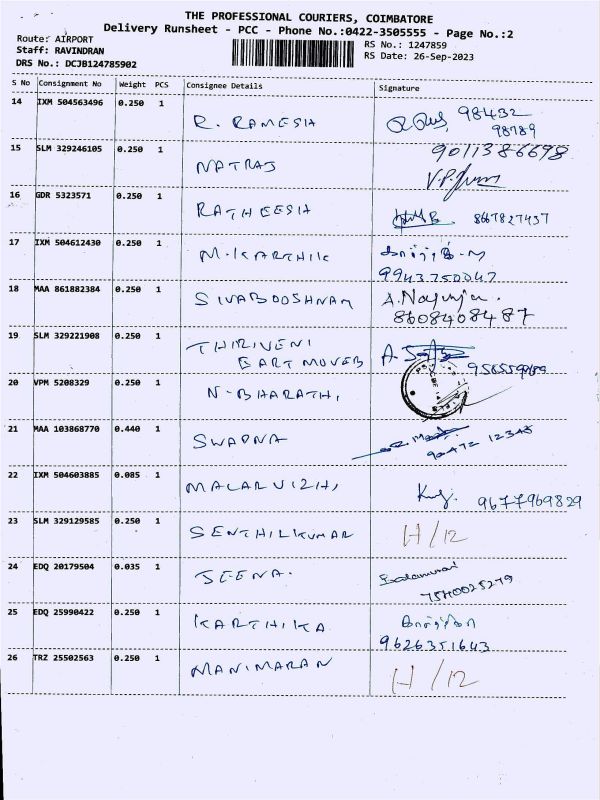 THE PROFESSIONAL COURIERS, COIMBATORE
Delivery Runsheet - PCC - Phone No.:0422-3505555 - Page No.:2
Route: AIRPORT
Staff: RAVINDRAN
DRS No.: DCJB124785902
RS No.: 1247859
RS Date: 26-Sep-2023
S No Consignment No Weight PCS Consignee Details Signature
14 IXM 504563496 0.250 1 R. RAMESH 98432
98789
15 SLM 329246105 0.250 1 NATRAJ 9011386698
16 GDR 5323571 0.250 1 RATHEESH 8667827437
17 IXM 504612430 0.250 1 M.KARTHIK
9943750047
18 MAA 861882384 0.250 1 SIVABOOSHNAM
8608408487
19 SLM 329221908 0.250 1 THIRIVENI
EART MOVEB
20 VPM 5208329 0.250 1 N-BHARATHI
21 MAA 103868770 0.440 1 SWAPNA 90472 12345
22 IXM 504603885 0.085 1 MALARVIZHI 9677969829
23 SLM 329129585 0.250 1 SENTHILKUMAR H/12
24 EDQ 20179504 0.035 1 JEENA. Balamurari
25 EDQ 25990422 0.250 1 KARTHIKA கார்த்திகா
9626351643
26 TRZ 25502563 0.250 1 MANIMARAN H/12